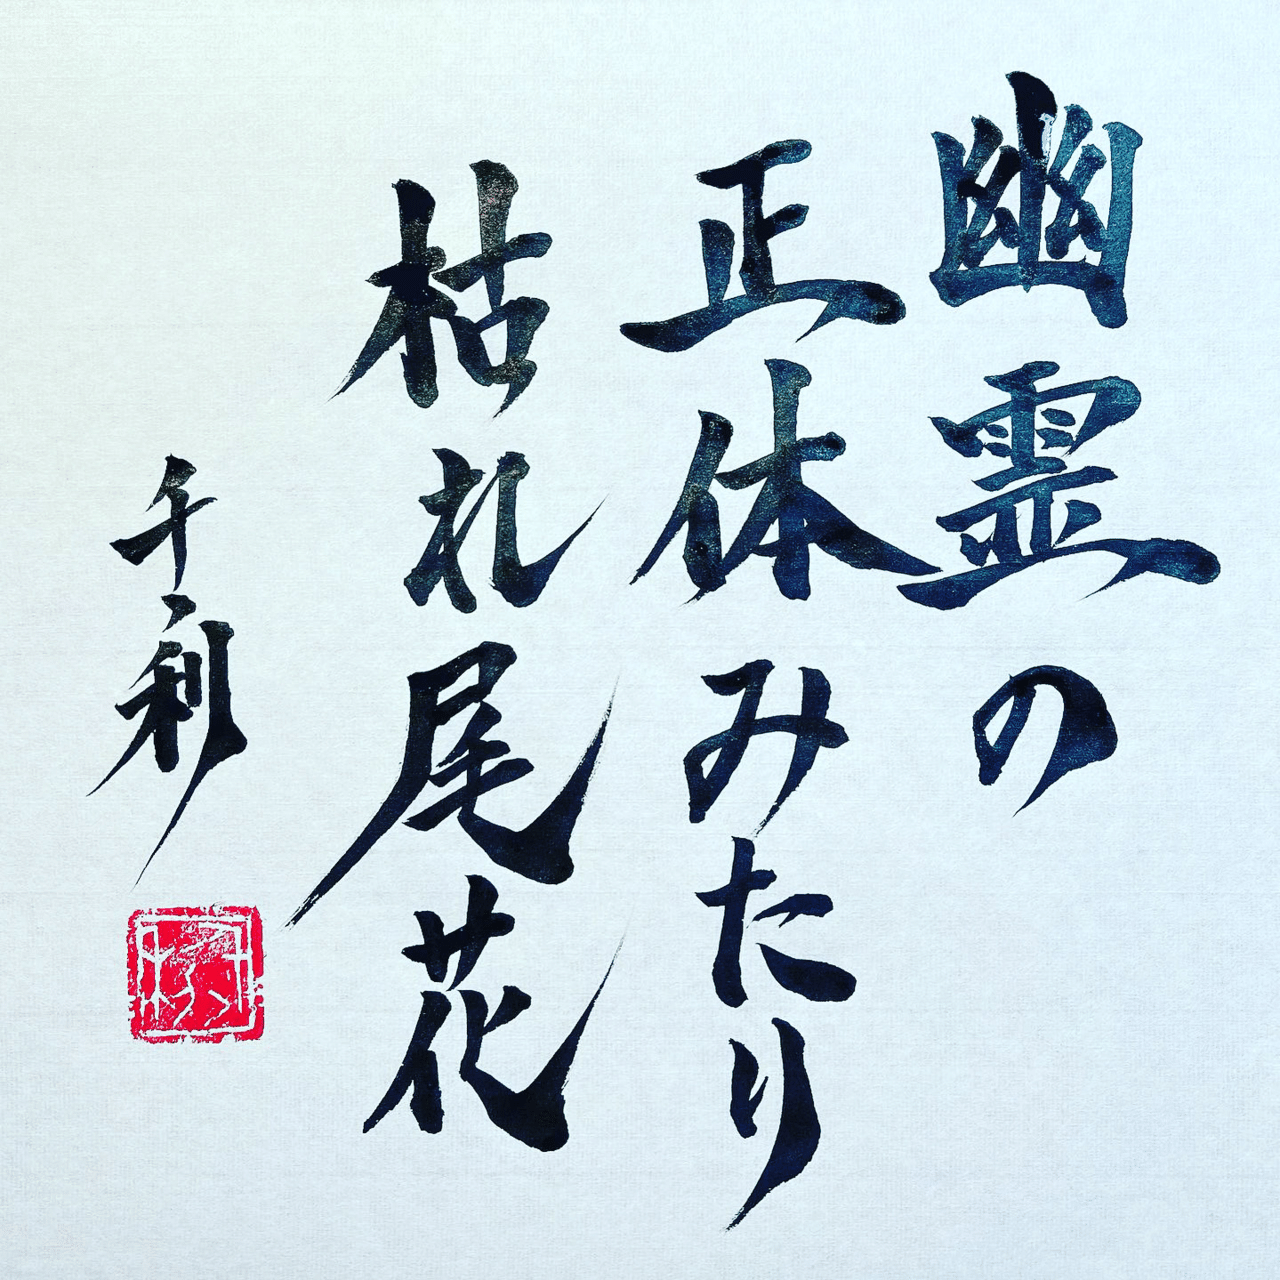 幽霊の
正体みたり
枯れ尾花
千利